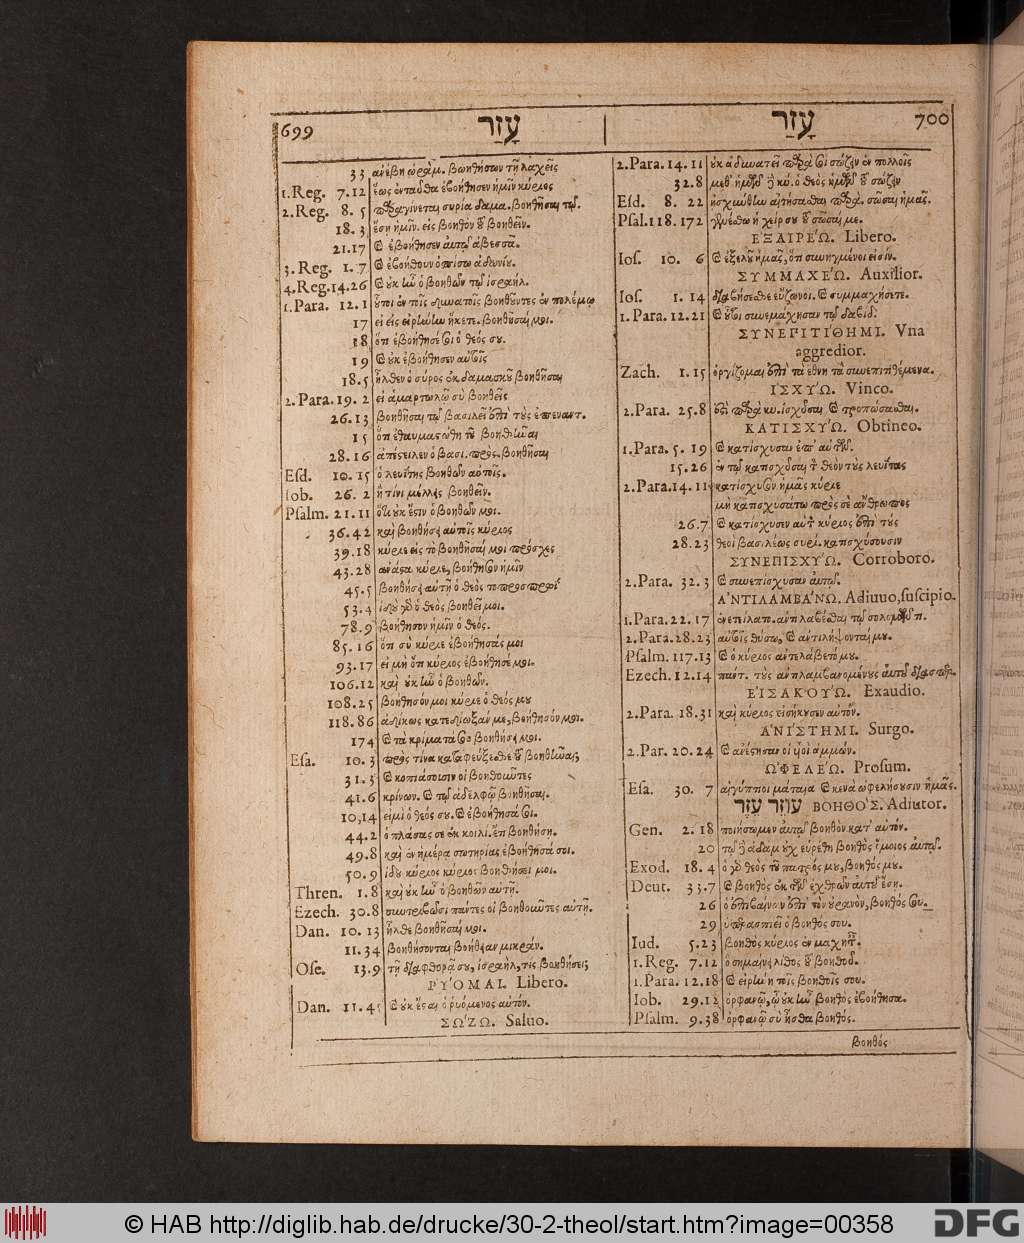 699 עָזַר
33 ἀνέβη ὡρὰμ. βοηθῆσαι τῇ λαχεῖς
1.Reg. 7.12 ἕως ἐνταῦθα ἐβοήθησεν ἡμῖν κύριος
2.Reg. 8. 5 παραγίνεται συρία δαμα. βοηθῆσαι τῷ.
18. 3 ἔσῃ ἡμῖν. εἰς βοηθὸν τοῦ βοηθεῖν.
21.17 καὶ ἐβοήθησεν αὐτῷ ἀβεσσᾶ.
3. Reg. 1. 7 καὶ ἐβοήθουν ὀπίσω ἀδωνίου.
4.Reg.14.26 καὶ οὐκ ἦν ὁ βοηθῶν τῷ ἰσραήλ.
1.Para. 12.1 οὗτοι ἐν τοῖς δυνατοῖς βοηθοῦντες ἐν πολέμῳ
17 εἰ εἰς εἰρήνην ἥκετε. βοηθῆσαί μοι.
18 ὅτι ἐβοήθησέ σοι ὁ θεός σου.
19 καὶ οὐκ ἐβοήθησεν αὐτοῖς
18.5 ἦλθεν ὁ σύρος ἐκ δαμασκοῦ βοηθῆσαι
2.Para.19. 2 εἰ ἁμαρτωλῷ σὺ βοηθεῖς
26.13 βοηθῆσαι τῷ βασιλεῖ ἐπὶ τοὺς ὑπεναντ.
15 ὅτι ἐθαυμαστώθη τοῦ βοηθῆναι
28.16 ἀπέστειλεν ὁ βασι. πρὸς. βοηθῆσαι
Esd. 10. 15 ὁ λευΐτης βοηθῶν αὐτοῖς.
Iob. 26. 2 ἢ τίνι μέλλεις βοηθεῖν.
Psalm. 21.11 ὅτι οὐκ ἔστιν ὁ βοηθῶν μοι.
36.42 καὶ βοηθήσει αὐτοῖς κύριος
39.18 κύριε εἰς τὸ βοηθῆσαί μοι πρόσχες
43.28 ἀνάστα κύριε, βοήθησον ἡμῖν
45.5 βοηθήσει αὐτῇ ὁ θεὸς τὸ πρὸς πρωΐ
53.4 ἰδοὺ γὰρ ὁ θεὸς βοηθεῖ μοι.
78.9 βοήθησον ἡμῖν ὁ θεός.
85. 16 ὅτι σὺ κύριε ἐβοήθησάς μοι
93.17 εἰ μὴ ὅτι κύριος ἐβοήθησέ μοι.
106.12 καὶ οὐκ ἦν ὁ βοηθῶν.
108.25 βοήθησόν μοι κύριε ὁ θεός μου
118.86 ἀδίκως κατεδίωξάν με, βοήθησόν μοι.
174 καὶ τὰ κρίματά σου βοηθήσει μοι.
Esa. 10. 3 πρὸς τίνα καταφεύξεσθε τοῦ βοηθῆναι;
31. 3 καὶ κοπιάσουσιν οἱ βοηθοῦντες
41. 6 κρίνων. καὶ τῷ ἀδελφῷ βοηθῆσαι.
10,14 εἰμὶ ὁ θεός σου. καὶ ἐβοήθησά σοι.
44.2 ὁ πλάσας σε ἐκ κοιλί. ἔτι βοηθήση.
49.8 καὶ ἐν ἡμέρᾳ σωτηρίας ἐβοήθησά σοι.
50. 9 ἰδοὺ κύριος κύριος βοηθήσει μοι.
Thren. 1.8 καὶ οὐκ ἦν ὁ βοηθῶν αὐτῇ.
Ezech. 30.8 συντριβῶσι πάντες οἱ βοηθοῦντες αὐτῇ.
Dan. 10. 13 ἦλθε βοηθῆσαί μοι.
11.34 βοηθήσονται βοήθειαν μικράν.
Ose. 13.9 τῇ διαφθορᾷ σου, ἰσραήλ, τίς βοηθήσει;
ΡΥΌΜΑΙ. Libero.
Dan. 11.45 καὶ οὐκ ἔσται ὁ ῥυόμενος αὐτόν.
ΣΩ΄ΖΩ. Saluo.
עָזַר 700
2.Para. 14. 11 οὐκ ἀδυνατεῖ παρὰ σοὶ σώζειν ἐν πολλοῖς
32.8 μεθ' ἡμῶν δὲ κύ. ὁ θεὸς ἡμῶν τοῦ σώζειν
Esd. 8. 22 ᾐσχύνθην αἰτήσασθαι παρὰ. σῶσαι ἡμᾶς.
Psal.118.172 γενέσθω ἡ χείρ σου τοῦ σῶσαί με.
ἘΞΑΙΡΈΩ. Libero.
Ios. 10. 6 καὶ ἐξελοῦ ἡμᾶς, ὅτι συνηγμένοι εἰσίν.
ΣΥΜΜΑΧΈΩ. Auxilior.
Ios. 1. 14 διαβήσεσθε εὔζωνοι. καὶ συμμαχήσετε.
1.Para. 12.21 καὶ αὐτοὶ συνεμάχησαν τῷ δαβίδ.
ΣΥΝΕΠΙΤΊΘΗΜΙ. Vna
aggredior.
Zach. 1.15 ὀργίζομαι ἐπὶ τὰ ἔθνη τὰ συνεπιτιθέμενα.
ἸΣΧΥΏ. Vinco.
2.Para. 25.8 ὅτι παρὰ κυ. ἰσχύσαι καὶ τροπώσασθαι.
ΚΑΤΙΣΧΥΏ. Obtineo.
1.Para. 5. 19 καὶ κατίσχυσαν ἐπ' αὐτῶν.
15.26 ἐν τῷ κατισχῦσαι τὸν θεὸν τοὺς λευΐτας
2.Para.14. 11 κατίσχυσον ἡμᾶς κύριε
μὴ κατισχυσάτω πρὸς σὲ ἄνθρωπος
26.7 καὶ κατίσχυσεν αὐτὸν κύριος ἐπὶ τοὺς
28.23 θεοὶ βασιλέως συρί. κατισχύσουσιν
ΣΥΝΕΠΙΣΧΥΏ. Corroboro.
2.Para. 32. 3 καὶ συνεπίσχυσαν αὐτῷ.
ἈΝΤΙΛΑΜΒΆΝΩ. Adiuuo, suscipio.
1.Para. 22. 17 ἐνετείλατο. ἀντιλαβέσθαι τῷ σολομῶν τι.
2.Para.28.23 αὐτοῖς θύσω, καὶ ἀντιλήψονταί μου.
Psalm. 117.13 καὶ ὁ κύριος ἀντελάβετό μου.
Ezech. 12.14 πάντ. τοὺς ἀντιλαμβανομένους αὐτοῦ διασπερ.
ΕΙΣΑΚΟΎΩ. Exaudio.
2.Para. 18.31 καὶ κύριος εἰσήκουσεν αὐτόν.
ἈΝΊΣΤΗΜΙ. Surgo.
2.Par. 20. 24 καὶ ἀνέστησαν οἱ υἱοὶ ἀμμών.
ὨΦΕΛΈΩ. Prosum.
Esa. 30. 7 αἰγύπτιοι μάταια καὶ κενὰ ὠφελήσουσιν ἡμᾶς.
עֵזֶר עוֹזֵר ΒΟΗΘΌΣ. Adiutor.
Gen. 2. 18 ποιήσωμεν αὐτῷ βοηθὸν κατ' αὐτόν.
20 τῷ δὲ ἀδὰμ οὐχ εὑρέθη βοηθὸς ὅμοιος αὐτῷ.
Exod. 18. 4 ὁ γὰρ θεὸς τοῦ πατρός μου, βοηθός μου.
Deut. 33.7 καὶ βοηθὸς ἐκ τῶν ἐχθρῶν αὐτοῦ ἔσῃ.
26 ὁ ἐπιβαίνων ἐπὶ τὸν οὐρανὸν, βοηθός σου.
29 ὑπερασπιεῖ ὁ βοηθός σου.
Iud. 5.23 βοηθὸς κύριος ἐν μαχητ.
1.Reg. 7.12 ὁ σημαίνει λίθος τοῦ βοηθοῦ.
1.Para. 12.18 καὶ εἰρήνη τοῖς βοηθοῖς σου.
Iob. 29.12 ὀρφανῷ, ᾧ οὐκ ἦν βοηθὸς ἐβοήθησα.
Psalm. 9.38 ὀρφανῷ σὺ ἦσθα βοηθός.
βοηθός
© HAB http://diglib.hab.de/drucke/30-2-theol/start.htm?image=00358
DFG